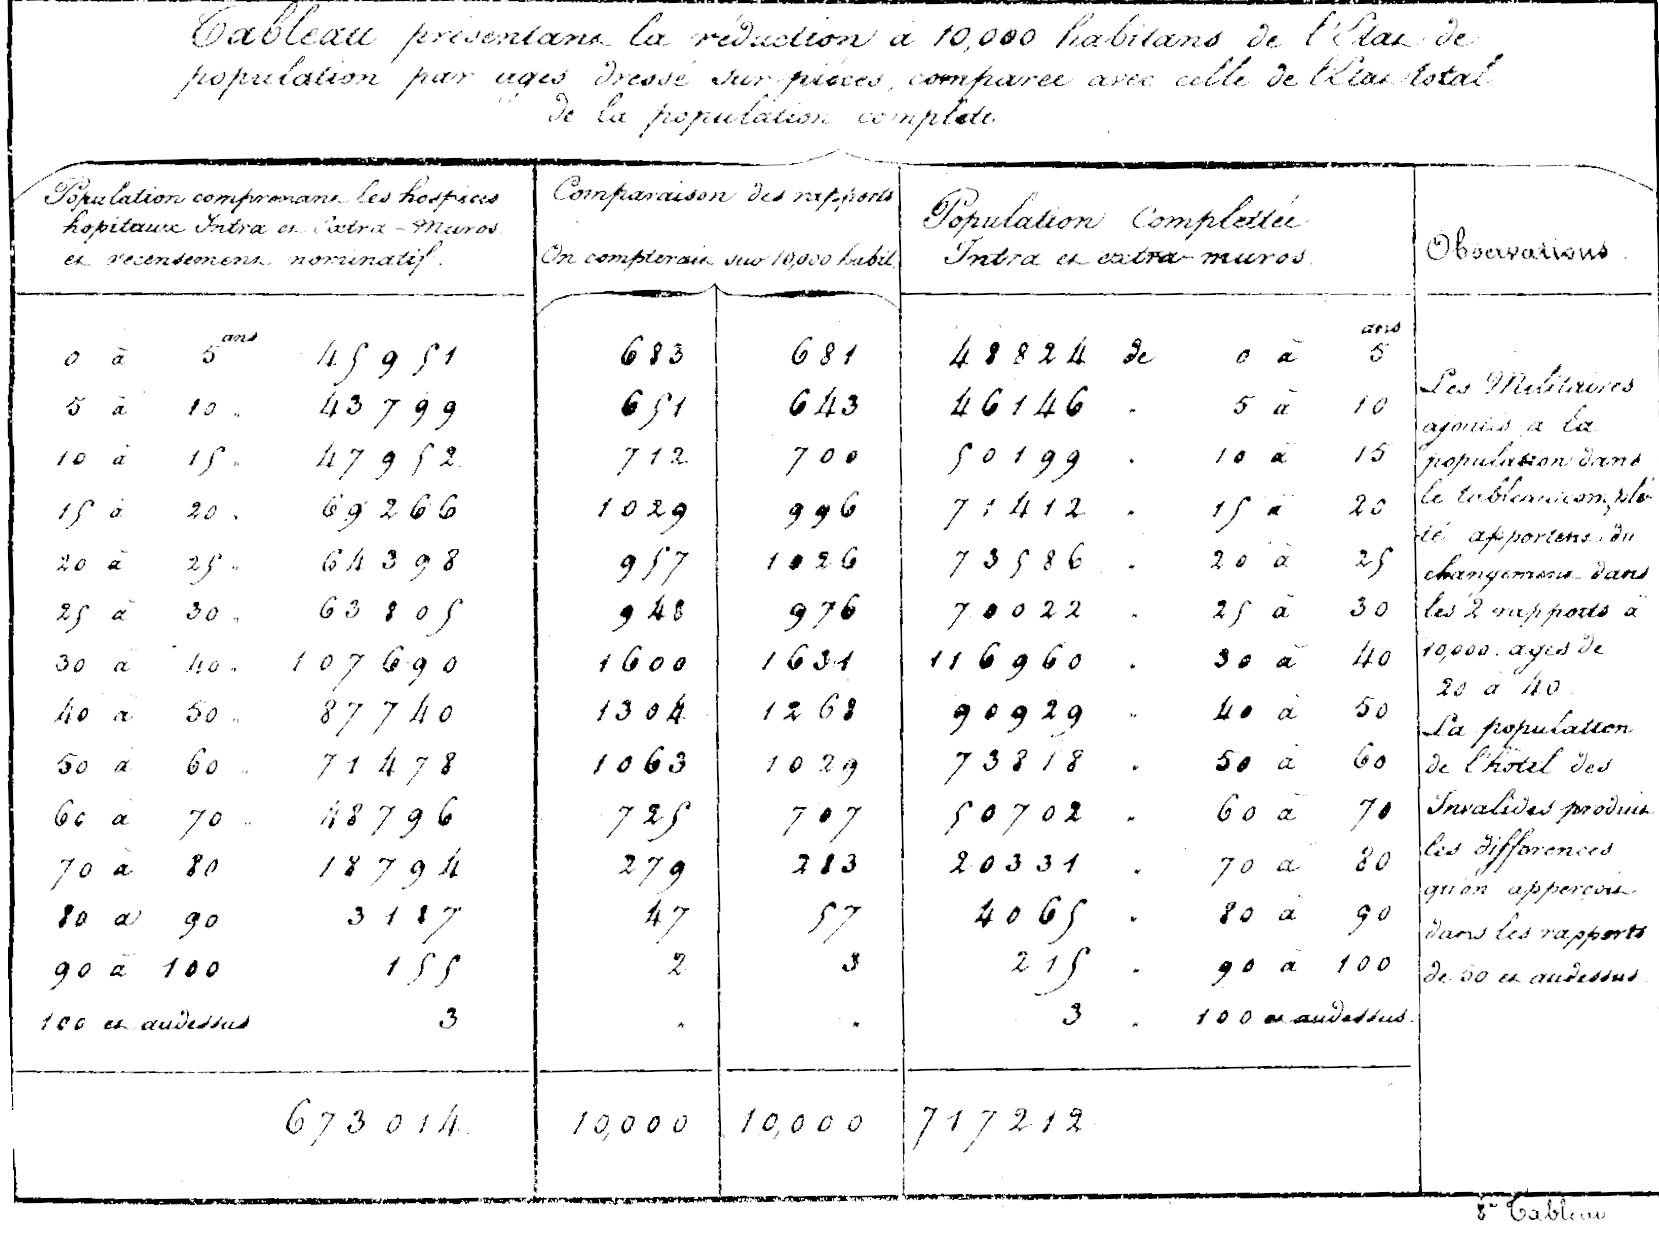 Tableau présentant la réduction à 10,000 habitans de l'État de
population par ages dressé sur pièces, comparée avec celle de l'État total
de la population complète
Population comprenant les hospices
hopitaux Intra et Extra-Muros
et recensement nominatif.
Comparaison des rapports
On compterait sur 10,000 habit.
Population Complettée
Intra et extra-muros.
Observations.
0 à 5 ans 45951 683 681 48824 de 0 à 5 ans
5 à 10 " 43799 651 643 46146 " 5 à 10
10 à 15 " 47952 712 700 50199 " 10 à 15
15 à 20 " 69266 1029 996 71412 " 15 à 20
20 à 25 " 64398 957 1026 73586 " 20 à 25
25 à 30 " 63805 948 976 70022 " 25 à 30
30 à 40 " 107690 1600 1631 116960 " 30 à 40
40 à 50 " 87740 1304 1268 90929 " 40 à 50
50 à 60 " 71478 1063 1029 73818 " 50 à 60
60 à 70 " 48796 725 707 50702 " 60 à 70
70 à 80 18794 279 283 20331 " 70 à 80
80 à 90 3187 47 57 4065 " 80 à 90
90 à 100 155 2 3 215 " 90 à 100
100 et audessus 3 " " 3 " 100 et audessus.
673014 10,000 10,000 717212
Les Militaires
ajoutés à la
population dans
le tableau complé-
té apportent du
changement dans
les 2 rapports à
10,000. ages de
20 à 40.
La population
de l'hôtel des
Invalides produit
les différences
qu'on apperçoit
dans les rapports
de 50 et audessus.
8e Tableau